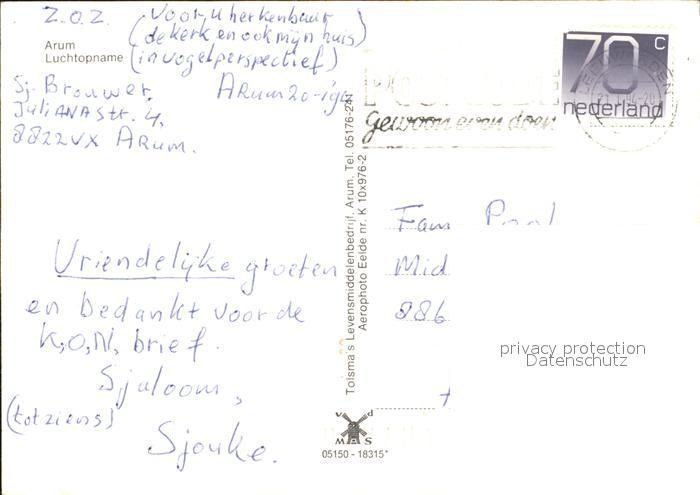 Z.O.Z. voor u herkenbaar
(de kerk en ook mijn huis)
(in vogelperspectief)
Arum
Luchtopname
Sj. Brouwer,
Julianastr. 4.
8822VX Arum.
Arum 20-1-94
gewoon even doen
70 c
nederland
Vriendelijke groeten
en bedankt voor de
K,O,N, brief.
Sjaloom,
(tot ziens)
Sjouke.
Tolsma's Levensmiddelenbedrijf, Arum, Tel. 05176-241
Aerophoto Eelde nr. K 10x976-2
Fam
Mid
886
privacy protection
Datenschutz
V D
M A S
05150 - 18315*